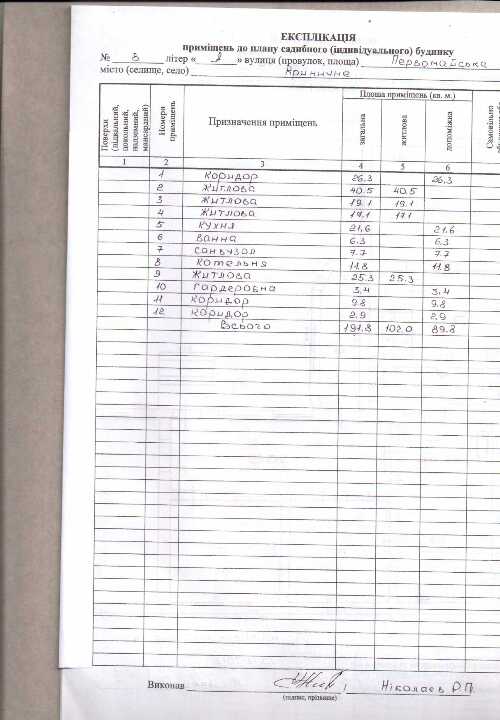 ЕКСПЛІКАЦІЯ
приміщень до плану садибного (індивідуального) будинку
№ 3 літер « » вулиця (провулок, площа) Первомайська
місто (селище, село) Криничне
Поверхи (підвальний, цокольний, надземний, мансардний) Номери приміщень Призначення приміщень Площа приміщень (кв. м.) загальна житлова допоміжна Самовільно
1 2 3 4 5 6
1 Коридор 26.3 26.3
2 Житлова 40.5 40.5
3 Житлова 19.1 19.1
4 Житлова 17.1 17.1
5 Кухня 21.6 21.6
6 Ванна 6.3 6.3
7 Санвузол 7.7 7.7
8 Котельня 11.8 11.8
9 Житлова 25.3 25.3
10 Гардеровна 3.4 3.4
11 Коридор 9.8 9.8
12 Коридор 2.9 2.9
Всього 191.8 102.0 89.8
Виконав Ніколаєв Р.П.
(підпис, прізвище)